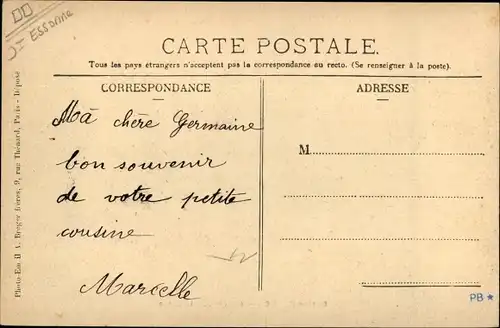 Essonne
CARTE POSTALE.
Tous les pays étrangers n'acceptent pas la correspondance au recto. (Se renseigner à la poste).
CORRESPONDANCE
Mâ chère Germaine
bon souvenir
de votre petite
cousine
Marcelle
ADRESSE
M
PB *
Berger frères, 9, rue Thénard, Paris - Déposé